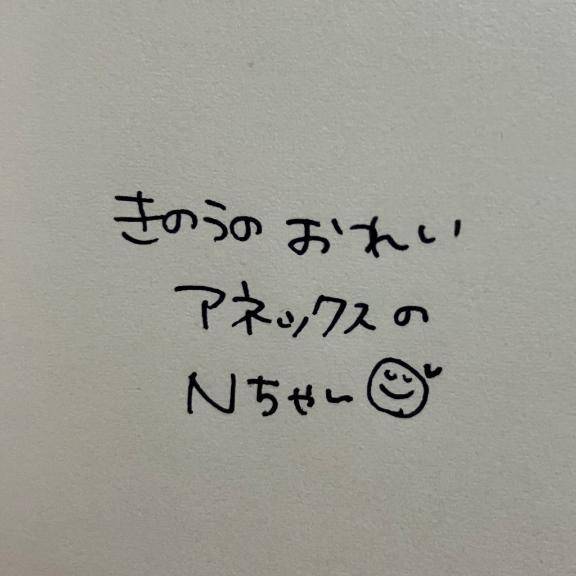 きのうの おれい
アネックスの
Nちゃん